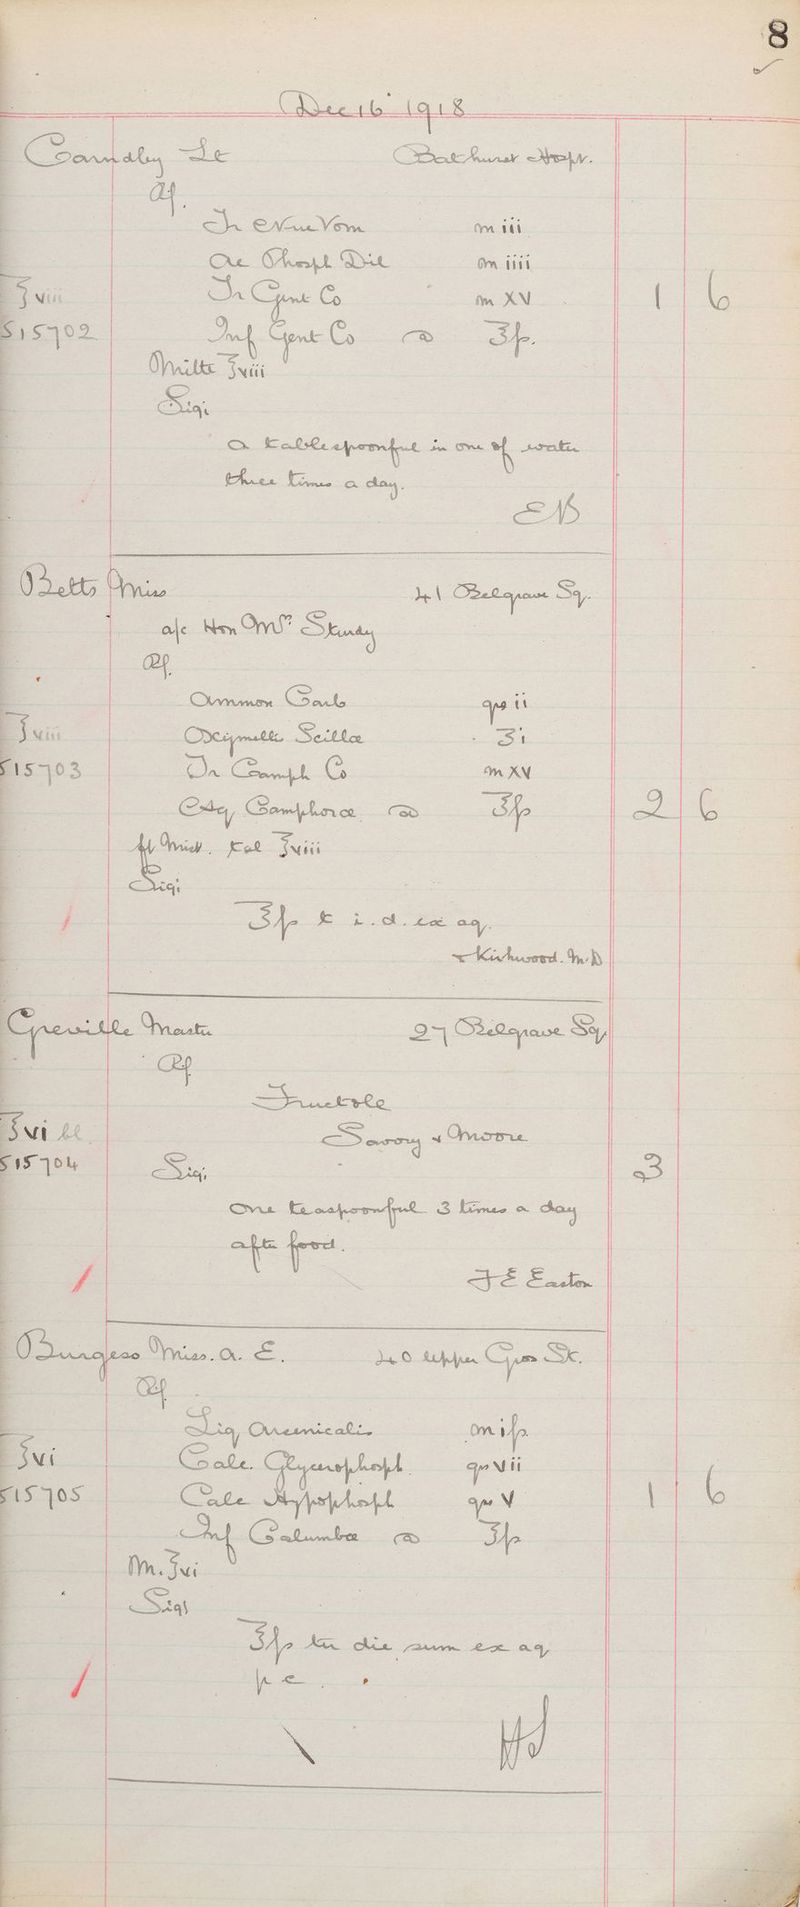 8
Dec 16 1918
Carndley Lt Bathurst Hospt.
Rf.
Tr Nuc Vom m iii
Ac Phosph Dil m iiii
℥viii Tr Gent Co m XV 1 6
515702 Inf Gent Co ad ℥ſs.
Mitte ℥viii
Sig:
a tablespoonful in one of water
three times a day.
EB
Betts Miss 41 Belgrave Sq.
a/c Hon Mrs Sturdy
Rf.
Ammon Carb grs ii
℥viii Oxymellis Scillæ ʒi
515703 Tr Camph Co m XV
Aq Camphoræ ad ℥ſs 2 6
ft Mist. tal ℥viii
Sig:
℥ſs t. i. d. ex aq.
Kirkwood. M.D
Greville Master 27 Belgrave Sq.
Rf.
Fructole
℥vi bt. Savory & Moore
515704 Sig: 3
One teaspoonful 3 times a day
after food.
F E Easton
Burgess Miss. A. E. 40 Upper Gros St.
Rf.
Liq Arsenicalis m iſs
℥vi Calc. Glycerophosph. grs vii
515705 Calc Hypophosph grs V 1 6
Inf Calumbæ ad ℥ſs
M. ℥vi
Sig:
℥ſs ter die sum ex aq
p c.
HS